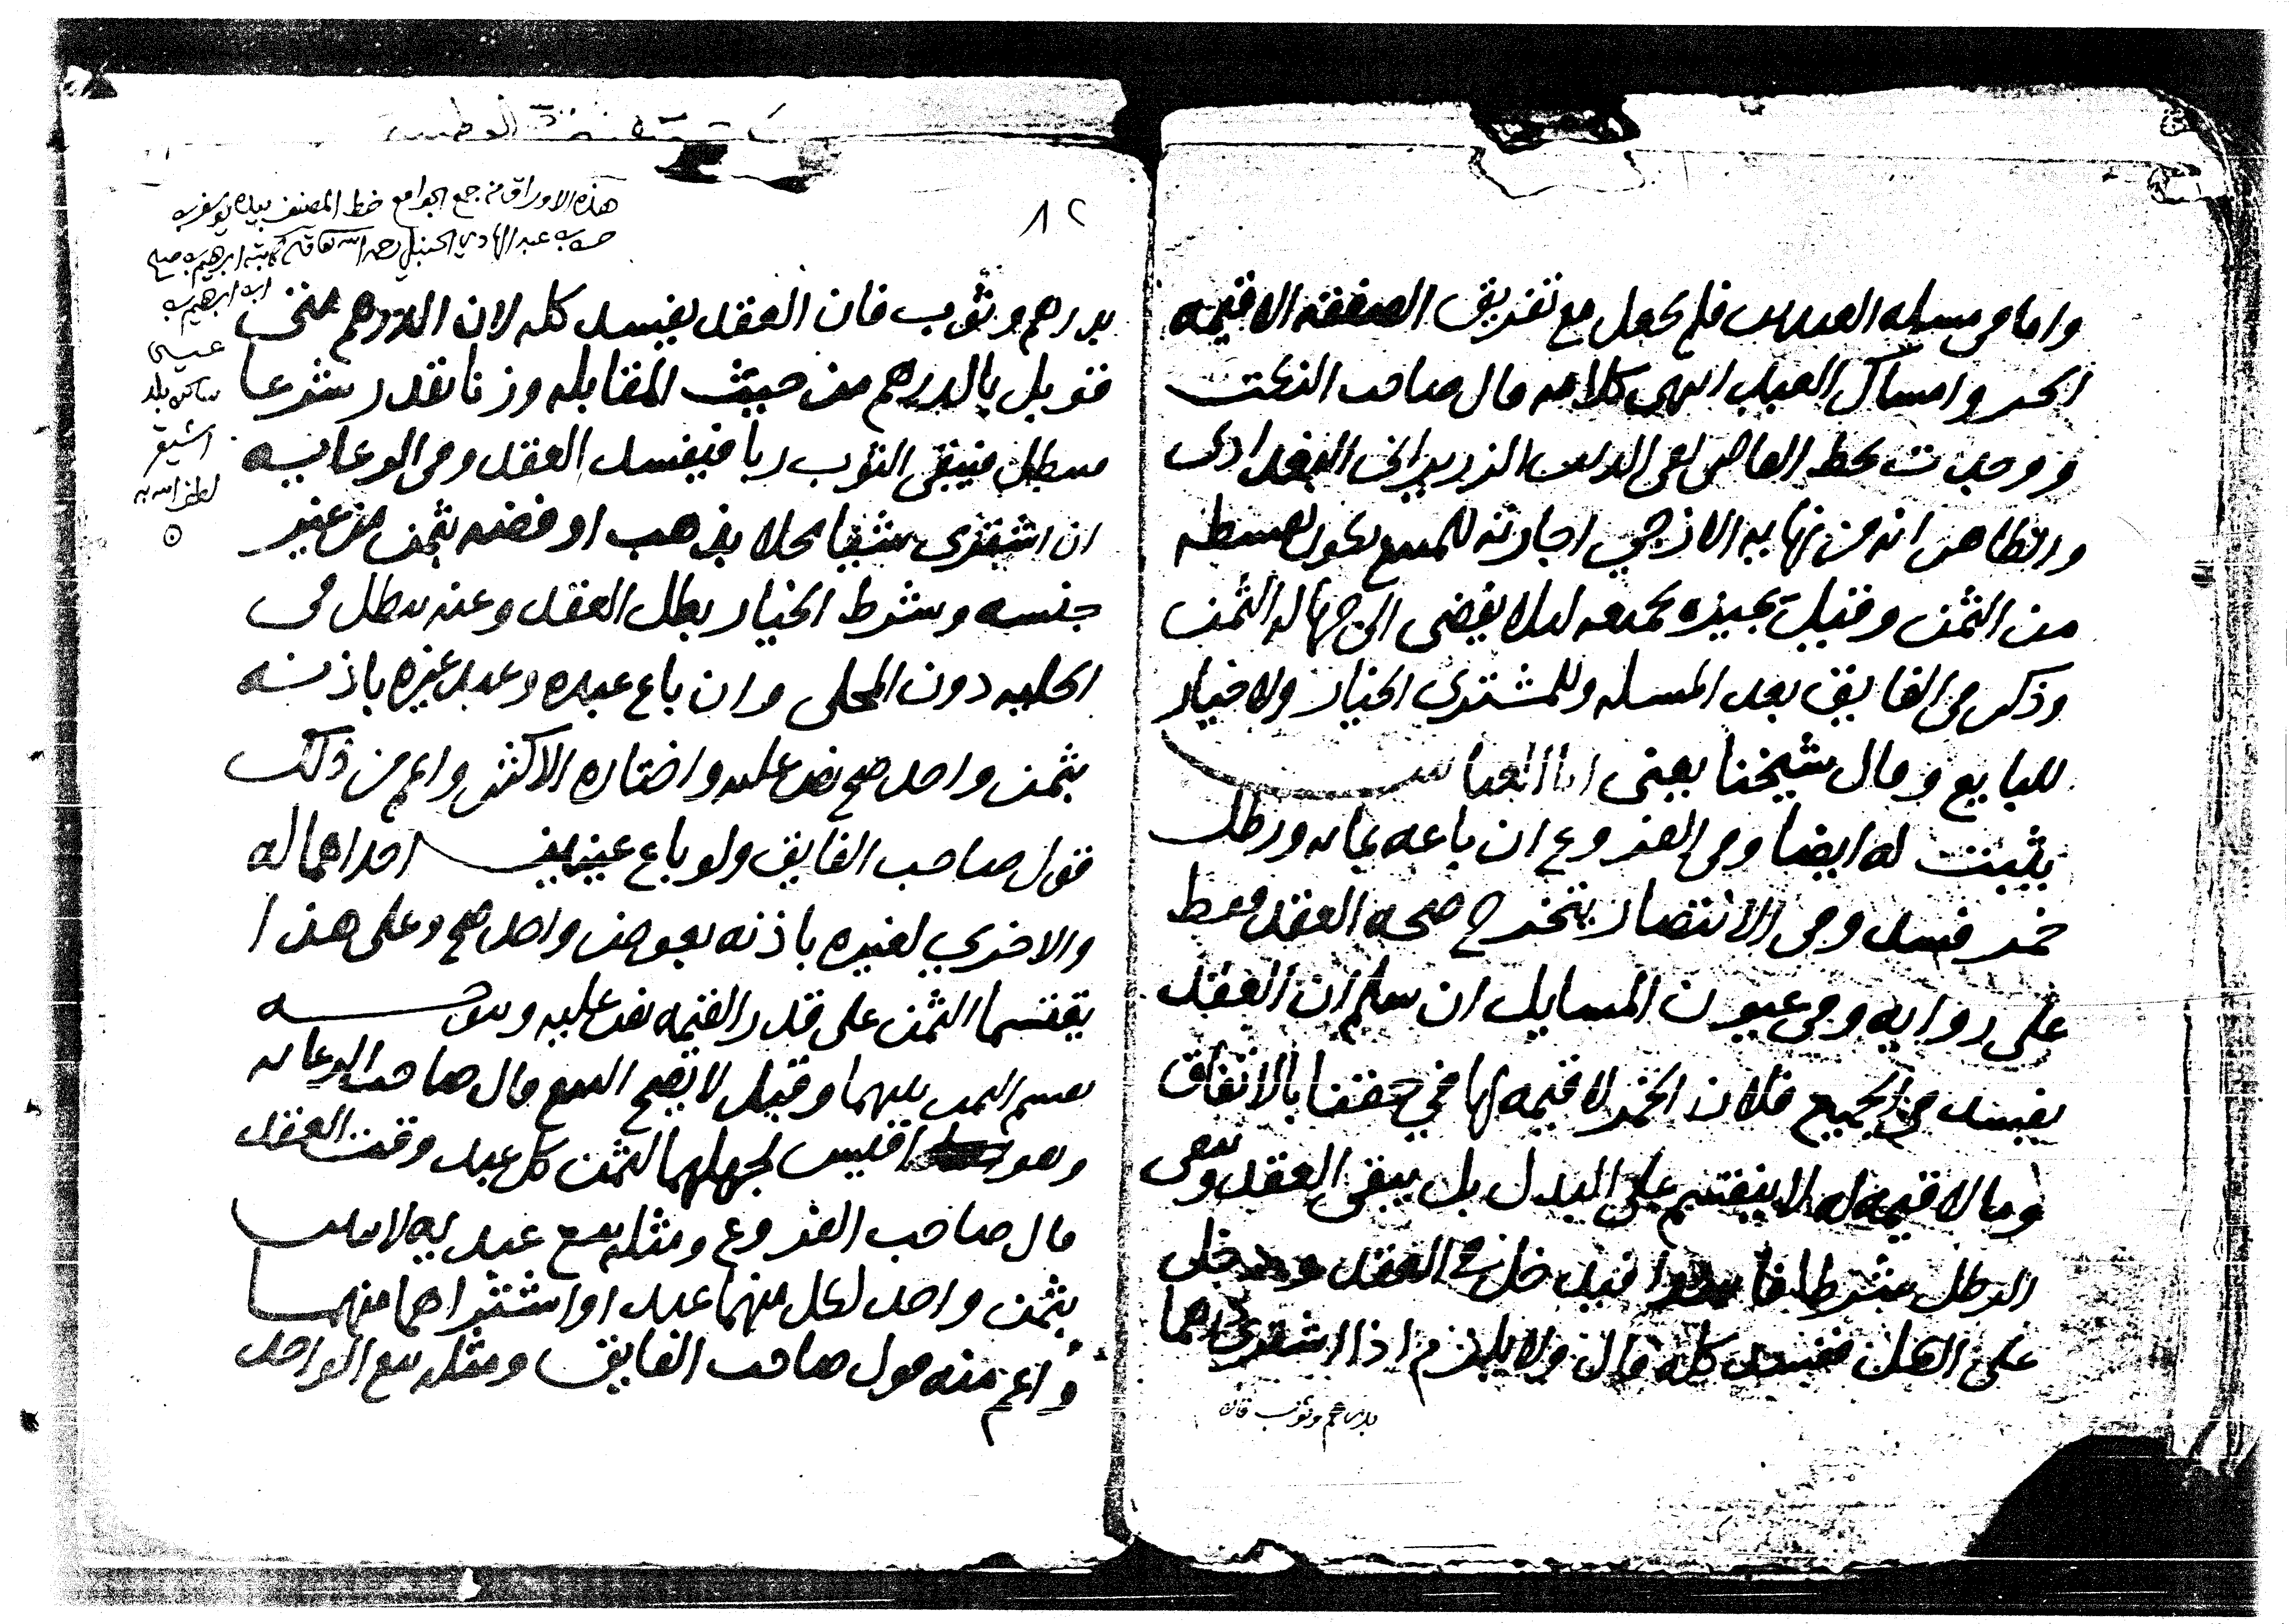 واما في مسله العبدين فلم يحصل مع تفريق الصفقه الا قيمه
الحر وامساك العبد انتهى كلامه قال صاحب النكت
ووجدت بخط القاضي تقي الدين الزريراني البغدادي
والظاهر انه من نهايه الازجي اجازته للمبيع يكون بقسطه
من الثمن وقيل يجيزه بجميعه ليلا يفضي الى جهاله الثمن
وذكر في الفايق بعد المسله وللمشتري الخيار ولا خيار
للبايع وقال شيخنا يعني ابا العباس
يثبت له ايضا وفي الفروع ان باعه بمايه ورطل
خمر فسد وفي الانتصار يتخرج صحه العقد فقط
على روايه وفي عيون المسايل ان سلم ان العقد
يفسد في الجميع فلان الخمر لا قيمه لها في حقنا بالاتفاق
وما لا قيمه له لا ينقسم على البدل بل يبقى العقد وبقي
الرطل شرطا فاسدا قيل خل في العقد ودخل
على الاصل ففسد كله قال ولا يلزم اذا اشترى درهما
بدرهم وثوب فان
٨٢
هذه الاوراق من جمع الجوامع خط المصنف بيده يوسف بن
حسن بن عبد الهادي الحنبلي رحمه الله تعالى كاتبه ابرهيم بن صالح
ابن ابرهيم بن
عيسى
ساكن بلد
اشيقر
لطف الله به
بدرهم وثوب فان العقد يفسد كله لان الدرهم متى
قوبل بالدرهم من حيث المقابله وزنا تقدر شرعا
مسطل فيبقى الثوب ربا فيفسد العقد وفي الرعايه
ان اشترى شيا محلا بذهب او فضه بثمن من غير
جنسه وشرط الخيار بطل العقد وعنه يبطل في
الحليه دون المحلى وان باع عبده وعبد غيره باذنه
بثمن واحد صح نص عليه واختاره الاكثر واعم من ذلك
قول صاحب الفايق ولو باع عينين احداهما له
والاخري لغيره باذنه بعوض واحد صح وعلى هذا
يقتسما الثمن على قدر القيمه نص عليه
يقسم الثمن بينهما وقيل لا يصح البيع قال صاحب الرعايه
وهو اقيس لجهلهما الثمن كل عبد وقت العقد
قال صاحب الفروع ومثله بيع عبديه لاثنين
بثمن واحد لكل منهما عبد او اشتراهما منهما
واعم منه قول صاحب الفايق ومثله بيع الواحد